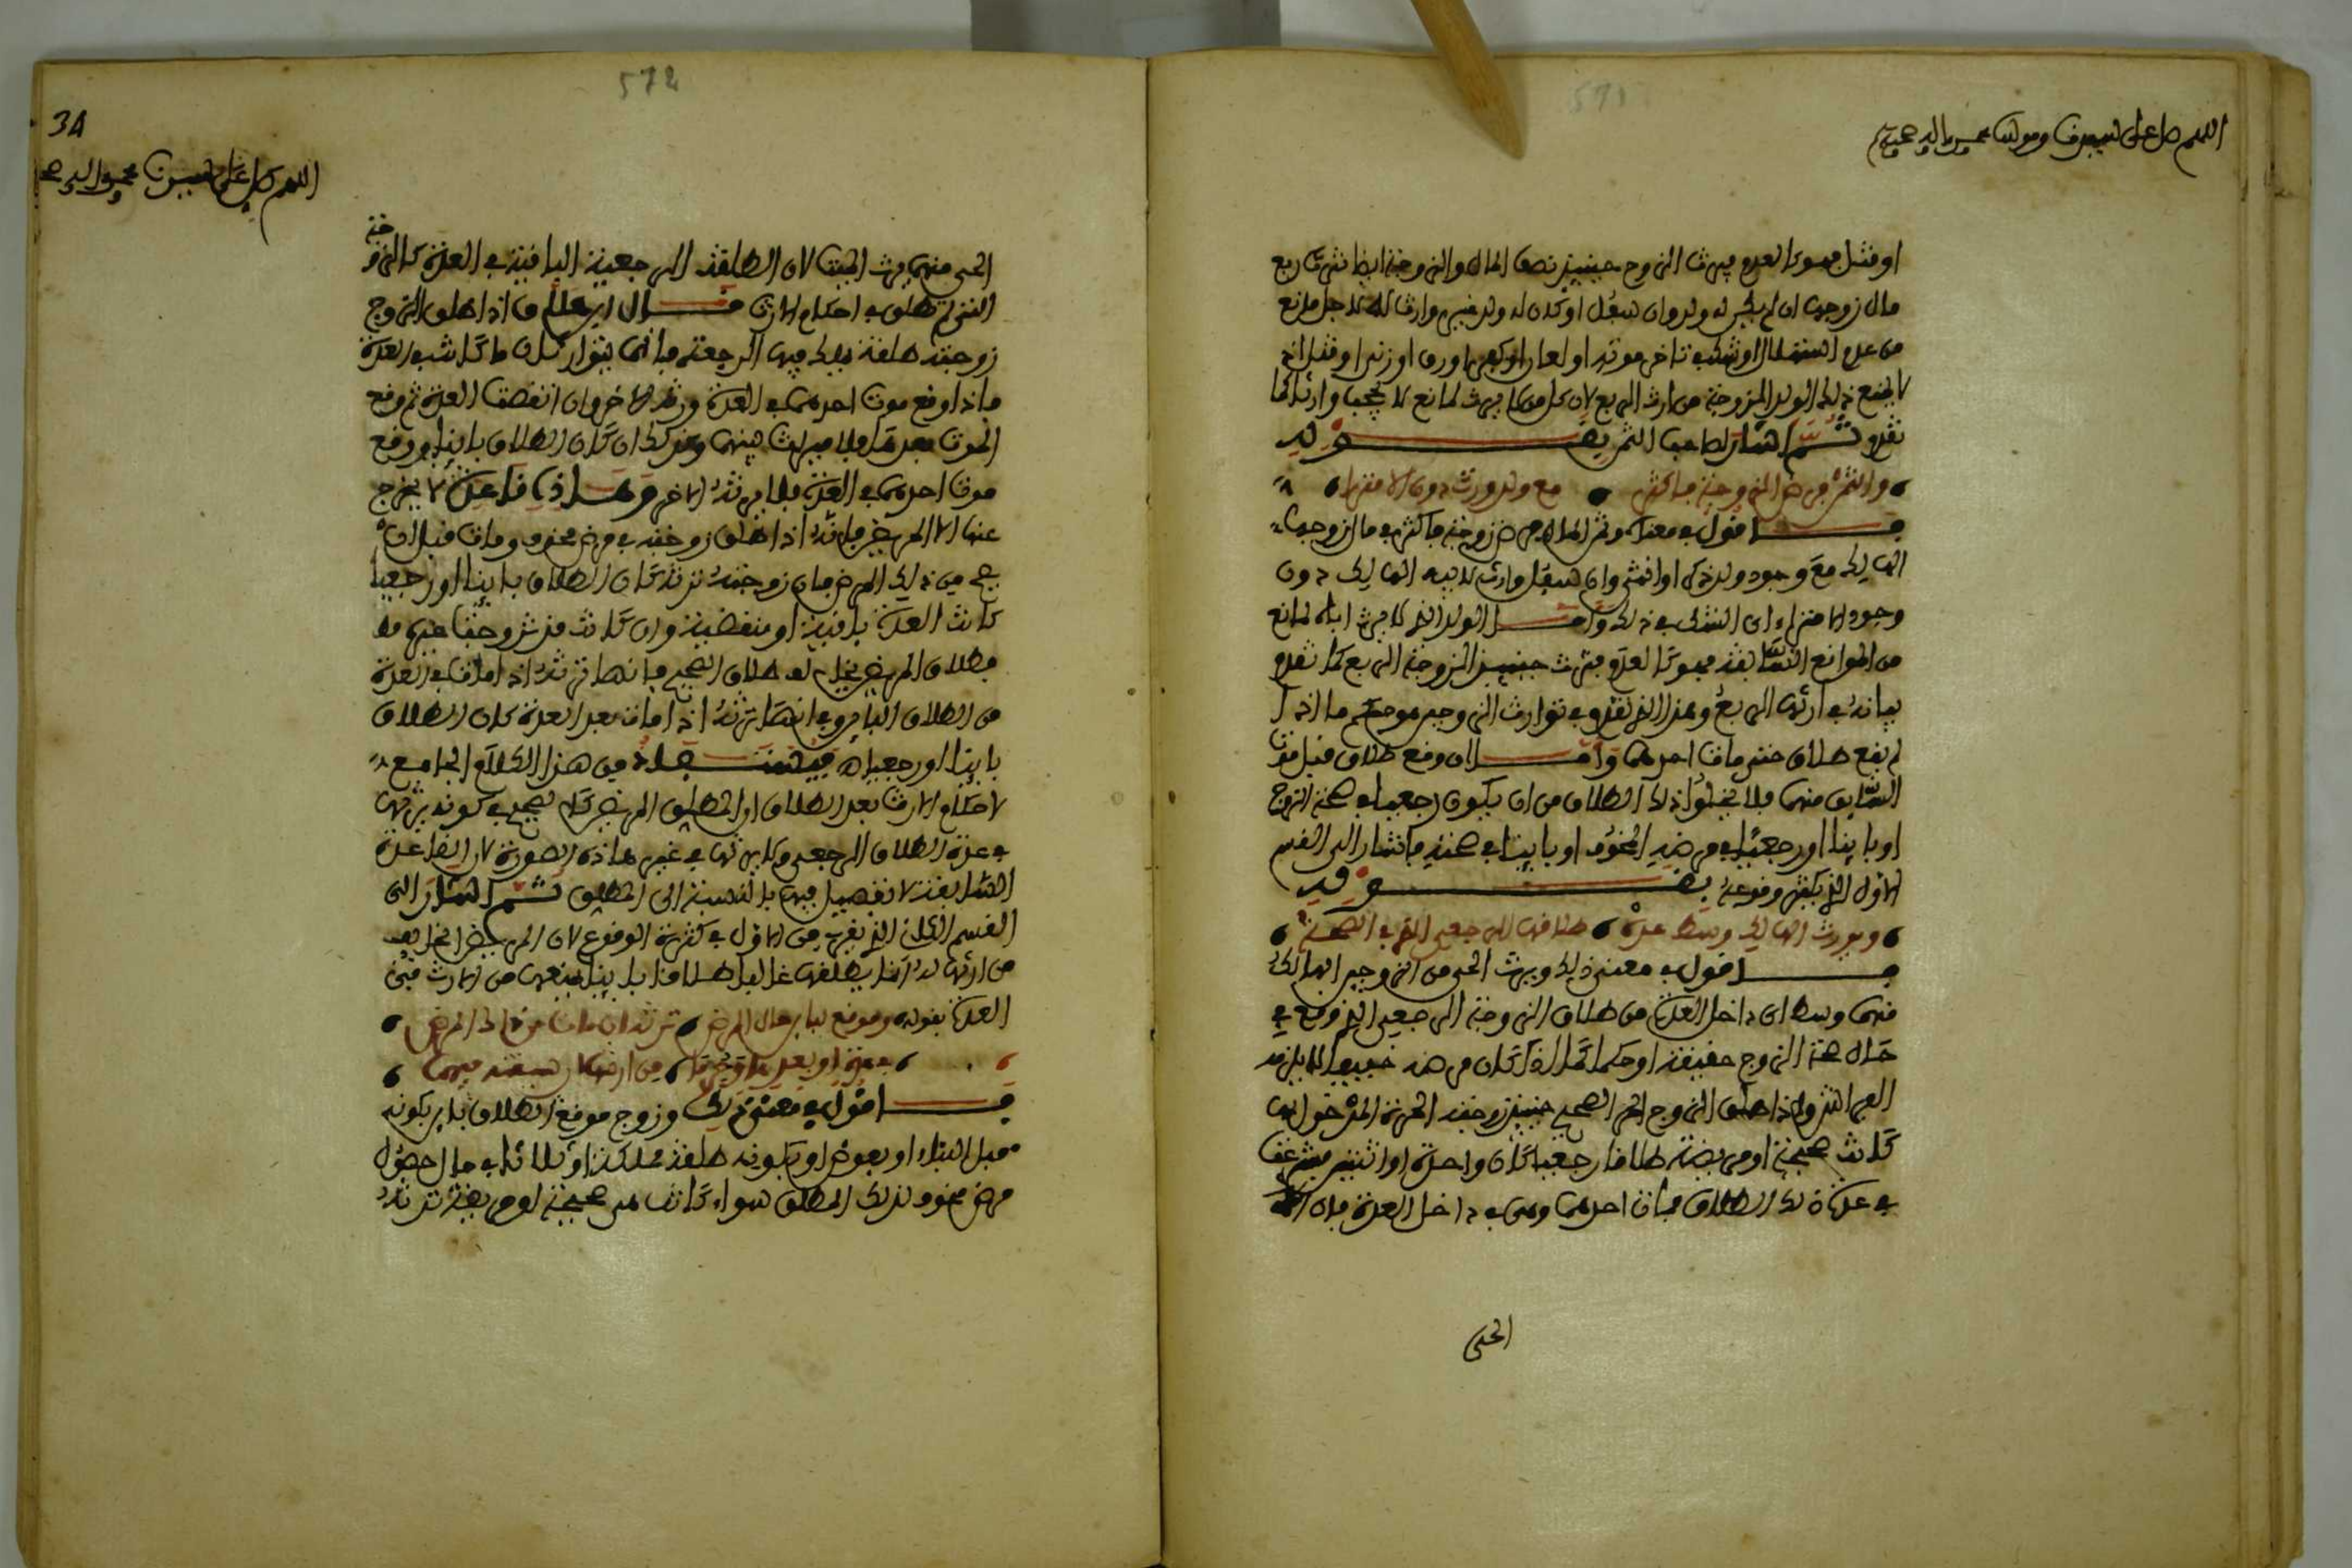 571
اللهم صل على سيدنا ومولنا محمد واله وصحبه
او قتل فهو كالعدم فيرث الزوج حينئذ نصف المال والزوجة ايضا ترث ربع
مال زوجها ان لم يكن له ولد وان سفل او كان له ولد غير وارث لاجل مانع
من عدم استهلال او شك في تاخر موته او لعان او كفر او رق او زنى او قتل اذ
لا يمنع ذلك الولد الزوجة من ارث الربع لان كل من لا يرث لمانع لا يحجب وارثا كما
تقدم ثم اشار لصاحب الثمن بقوله
والثمن فرض الزوجة فاكثر مع ولد ورث دون الامترا
فاقول في معناه وثمن المال فرض زوجة فاكثر في مال زوجها
الهالك مع وجود ولد ذكر او انثى وان سفل وارث لابيه الهالك دون
وجود امتراء اي الشك في ذلك واما الولد الذي لا يرث اباه لمانع
من الموانع السابقة فهو كالعدم فترث حينئذ الزوجة الربع كما تقدم
بيانه في ارثها الربع وهذا الذي تقدم في توارث الزوجين هو حكم ما اذا
لم يقع طلاق حتى مات احدهما واما ان وقع طلاق قبل موت
السابق منهما فلا يخلوا ذلك الطلاق من ان يكون رجعيا في صحة الزوج
او باينا او رجعيا في مرضه المخوف او باينا في صحته فاشار الى القسم
الاول الذي يكثر وقوعه بقوله
ويورث الهالك وسط عدة طلاقها الرجعي الذي في الصحة
فاقول في معنى ذلك ويرث الحي من الزوجين الهالك
منهما وسط اي داخل العدة من طلاق الزوجة الرجعي الذي وقع في
حال صحة الزوج حقيقة او حكما كما اذا كان مرضه خفيفا لا يلزمه
الفراش واذا طلق الزوج الحر الصحيح حينئذ زوجته الحرة المدخول بها
كانت صحيحة او مريضة طلاقا رجعيا كان واحدة او اثنتين فشرعت
في عدة ذلك الطلاق فمات احدهما وهي في داخل العدة فان
الحي
572
34
اللهم صل على سيدنا محمد واله
الحي منهما يرث الميت لان الطلقة الرجعية الباقية في العدة كالزوجة
التي لم تطلق في احكام الارث قال ابن سلمون اذا طلق الزوج
زوجته طلقة يملك فيها الرجعة فانهما يتوارثان ما كانت في العدة
فاذا وقع موت احدهما في العدة ورثه الاخر وان انقضت العدة ثم وقع
الموت بعدها فلا ميراث بينهما وكذلك ان كان الطلاق باينا ووقع
موت احدهما في العدة فلا يرثه الاخر وهذه قاعدة لا يخرج
عنها الا المريض فانه اذا طلق زوجته في مرض مخوف ومات قبل ان
يصح من ذلك المرض فان زوجته ترثه كان الطلاق باينا او رجعيا
كانت العدة باقية او منقضية وان كانت قد تزوجت غيره
فطلاق المريض يخالف طلاق الصحيح في انها ترثه اذا مات في العدة
من الطلاق الباين وفي انها ترثه اذا مات بعد العدة كان الطلاق
باينا او رجعيا فيستفاد من هذا الكلام الجامع
لاحكام الارث بعد الطلاق ان المطلق المريض كالصحيح في كونه يرثها
في عدة الطلاق الرجعي ولا يرثها في غير هاذه الصورة لان القاعدة
السابقة لا تفصيل فيها بالنسبة الى المطلق ثم اشار الى
القسم الثاني الذي يقرب من الاول في كثرة الوقوع لان المريض الخايف
من ارثها له انما يطلقها غالبا طلاقا باينا ليمنعها من الارث في
العدة بقوله وموقع لباين حال المرض ترثه ان مات من ذاك المرض
في عدة او بعد من ارثها
فاقول في معنى ذلك وزوج موقع الطلاق باين بكونه
قبل البناء او بعوض او بكونه طلقة مملكة او ثلاثا في حال حصول
مرض مخوف لذلك المطلق سواء كانت هي صحيحة او مريضة ترثه